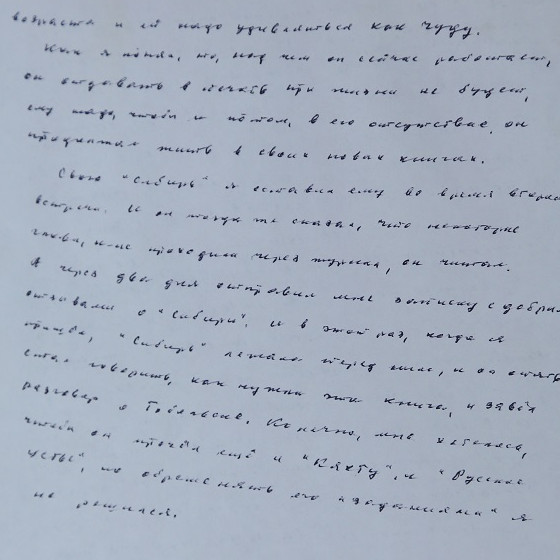 возраста и ей надо удивляться как чуду.
Как я понял, то, над чем он сейчас работает,
он отдавать в печать при жизни не будет,
ему надо, чтобы и потом, в его отсутствие, он
продолжал жить в своих новых книгах.
Свою "Сибирь" я оставил ему во время второй
встречи. И он тогда же сказал, что некоторые
главы, к-рые проходили через журнал, он читал.
А через два дня отправил мне записку с добрыми
отзывами о "Сибири". И в этот раз, когда я
пришёл, "Сибирь" лежала перед ним, и он опять
стал говорить, как нужна эта книга, и завёл
разговор о Тобольске. Конечно, мне хотелось,
чтобы он прочёл ещё и "Кяхту", и "Русское
Устье", но обременять его "заданиями" я
не решился.